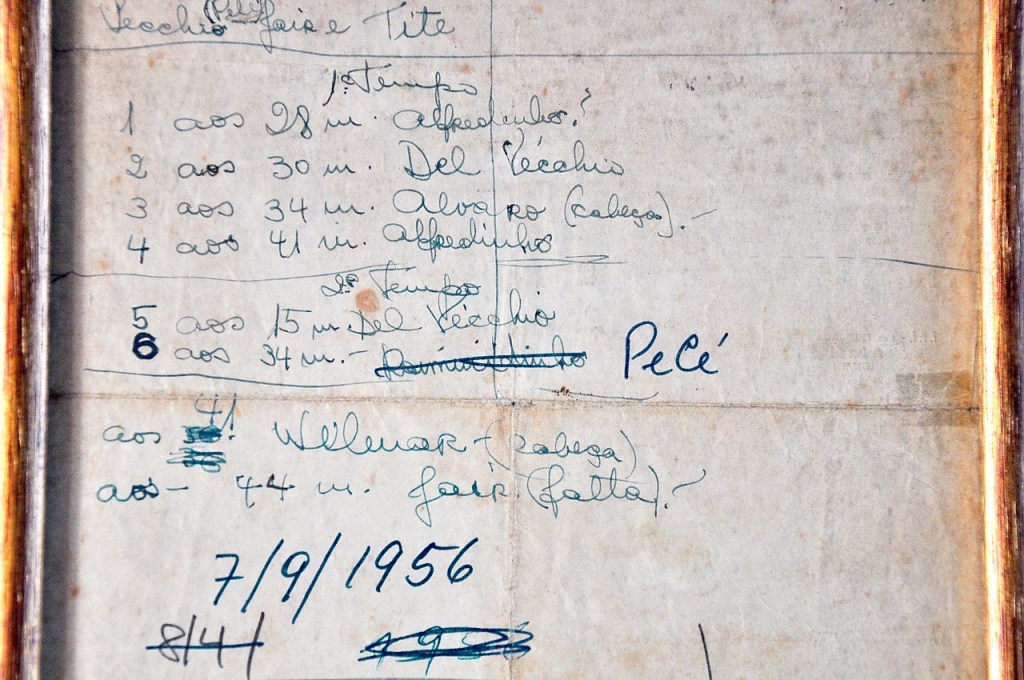 Vecchio (Pelé) Jair e Tite
1º Tempo
1 aos 28 m. Alfredinho.
2 aos 30 m. Del Vecchio
3 aos 34 m. Alvaro (cabeça).-
4 aos 41 m. Alfredinho
2º Tempo
5 aos 15 m. Del Vecchio
6 aos 34 m.- PeLé
aos 41 Wilmar - (cabeça)
aos - 44 m. Jair (falta).-
7/9/1956
8/4/